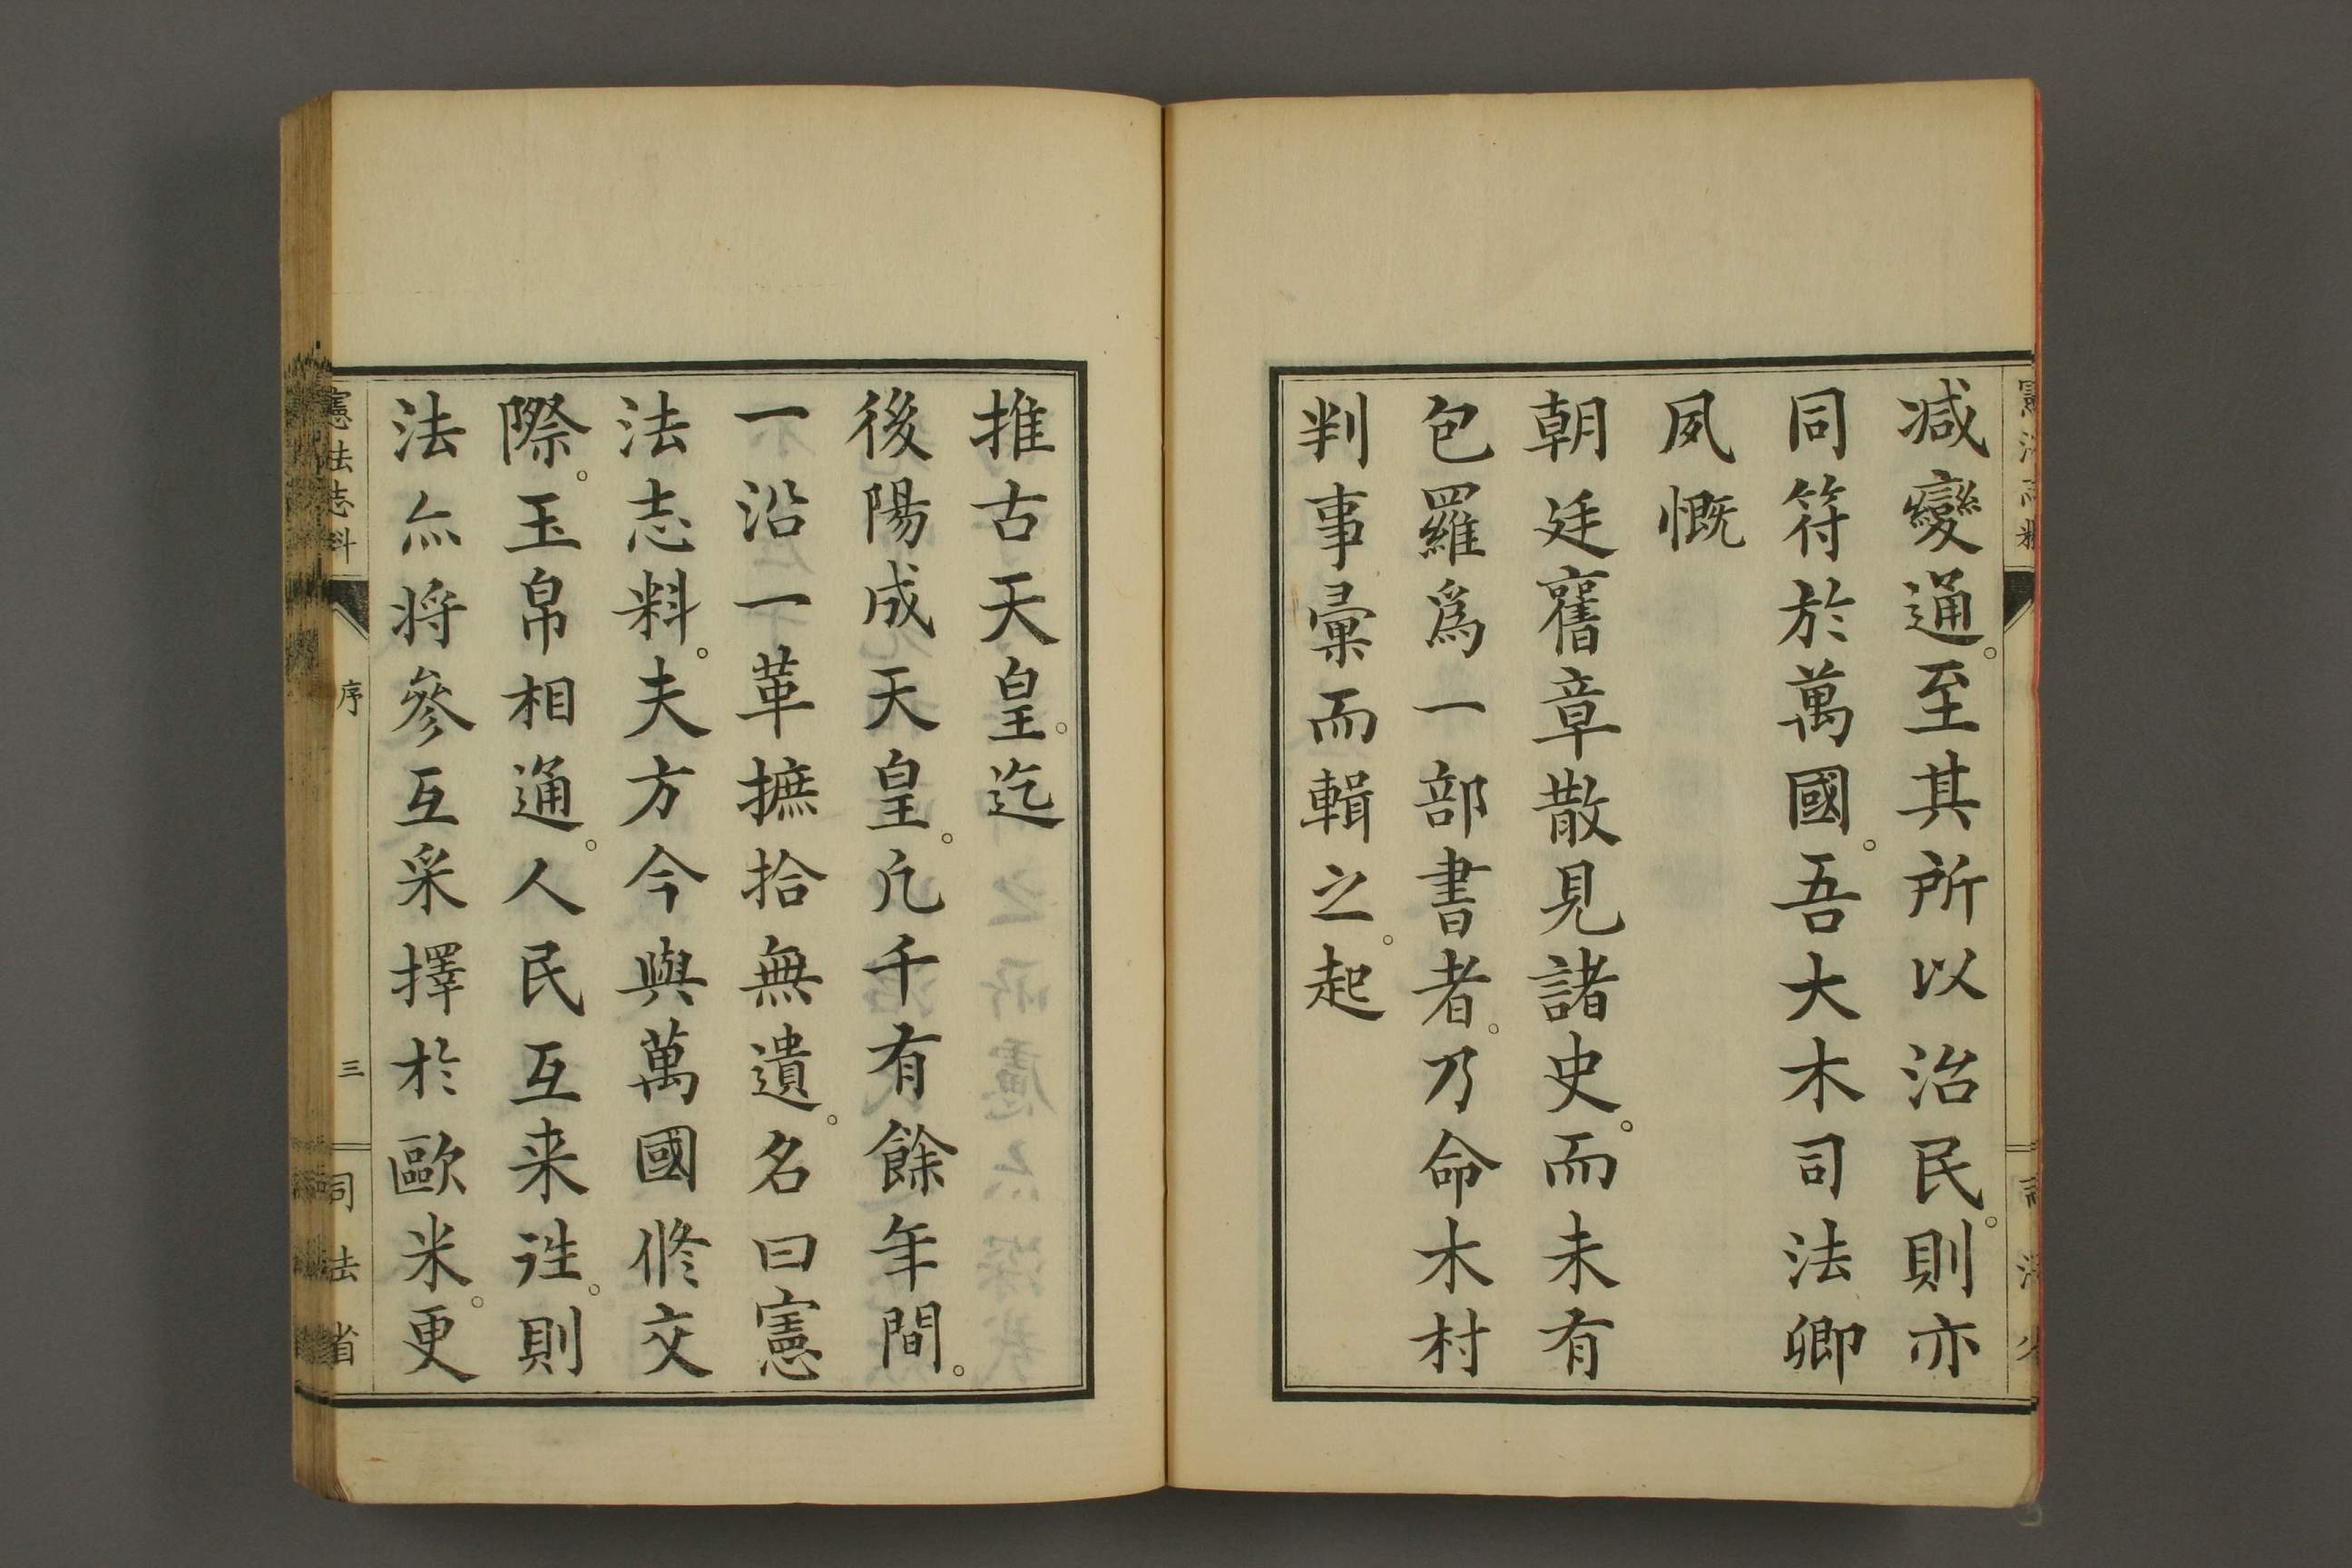 减變通。至其所以治民。則亦
同符於萬國。吾大木司法卿
夙慨
朝廷舊章散見諸史。而未有
包羅爲一部書者。乃命木村
判事彙而輯之。起
推古天皇。迄
後陽成天皇。凡千有餘年間。
一沿一革摭拾無遺。名曰憲
法志料。夫方今與萬國修交
際。玉帛相通。人民互来往。則
法亦将參互采擇於歐米。更
憲法志料
序
三
司法省